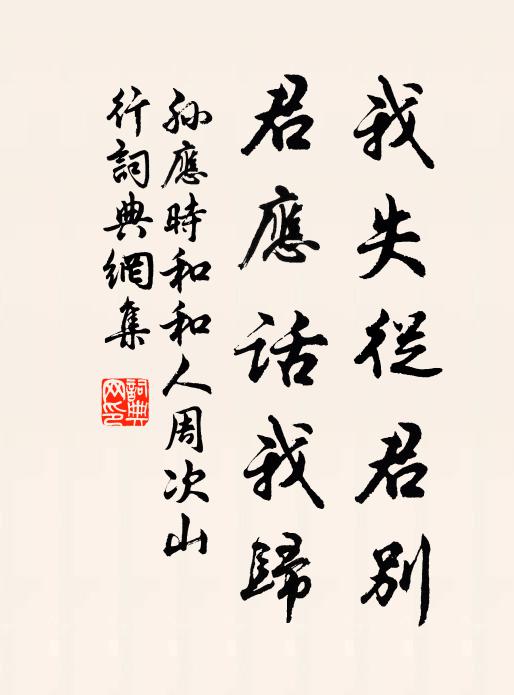 我失從君別
君應話我歸
孫應時和和人周次山
行詞典網集
詞典网印